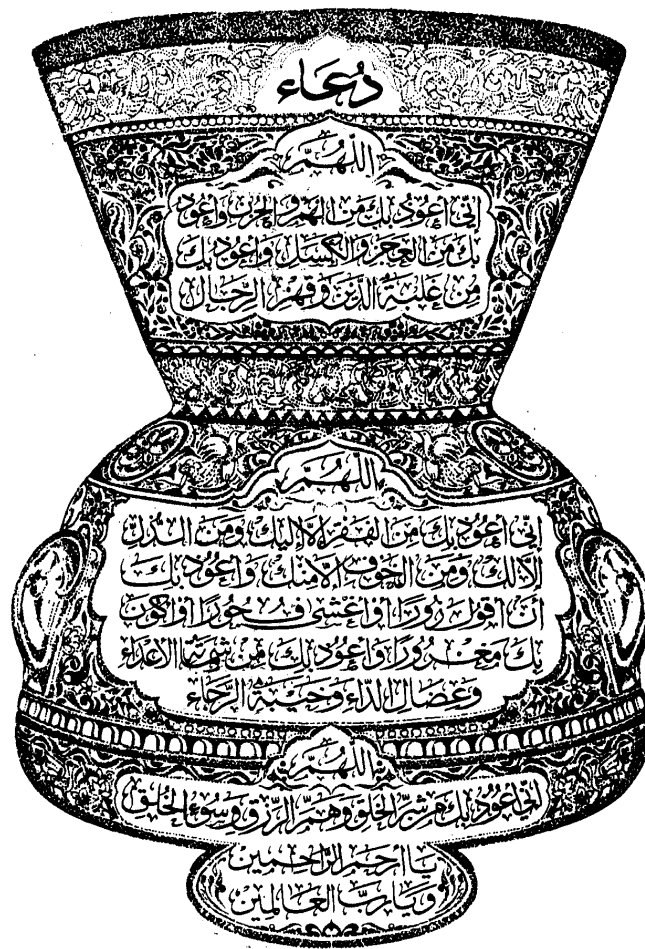 دُعَاء
اللّهُمَّ
إنّي أعُوذُ بِكَ مِنَ الهَمِّ وَالحُزنِ وَأعُوذُ
بِكَ مِنَ العَجزِ وَالكَسَلِ وَأعُوذُ بِكَ
مِن غَلَبَةِ الدَّينِ وَقَهرِ الرِّجَالِ
اللّهُمَّ
إنّي أعُوذُ بِكَ مِنَ الفَقرِ إلَّا إلَيكَ وَمِنَ الذُّلِّ
إلَّا لَكَ وَمِنَ الخَوفِ إلَّا مِنكَ وَأعُوذُ بِكَ
أن أقُولَ زُورًا أو أغشَى فُجُورًا أو أكُونَ
بِكَ مَغرُورًا وَأعُوذُ بِكَ مِن شَمَاتَةِ الأعدَاءِ
وَعُضَالِ الدَّاءِ وَخَيبَةِ الرَّجَاءِ
اللّهُمَّ
إنّي أعُوذُ بِكَ مِن شَرِّ الخَلقِ وَهَمِّ الرِّزقِ وَسُوءِ الخُلُقِ
يَا أرحَمَ الرَّاحِمِينَ
وَيَا رَبَّ العَالَمِينَ